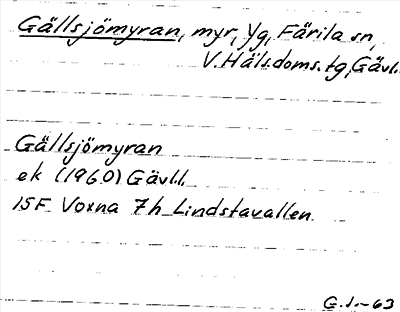 Gällsjömyran, myr, yg, Färila sn,
V. Häls. doms. tg, Gävl.
Gällsjömyran
ek (1960) Gävl.
15F Voxna 7h Lindstavallen
G.J.-63